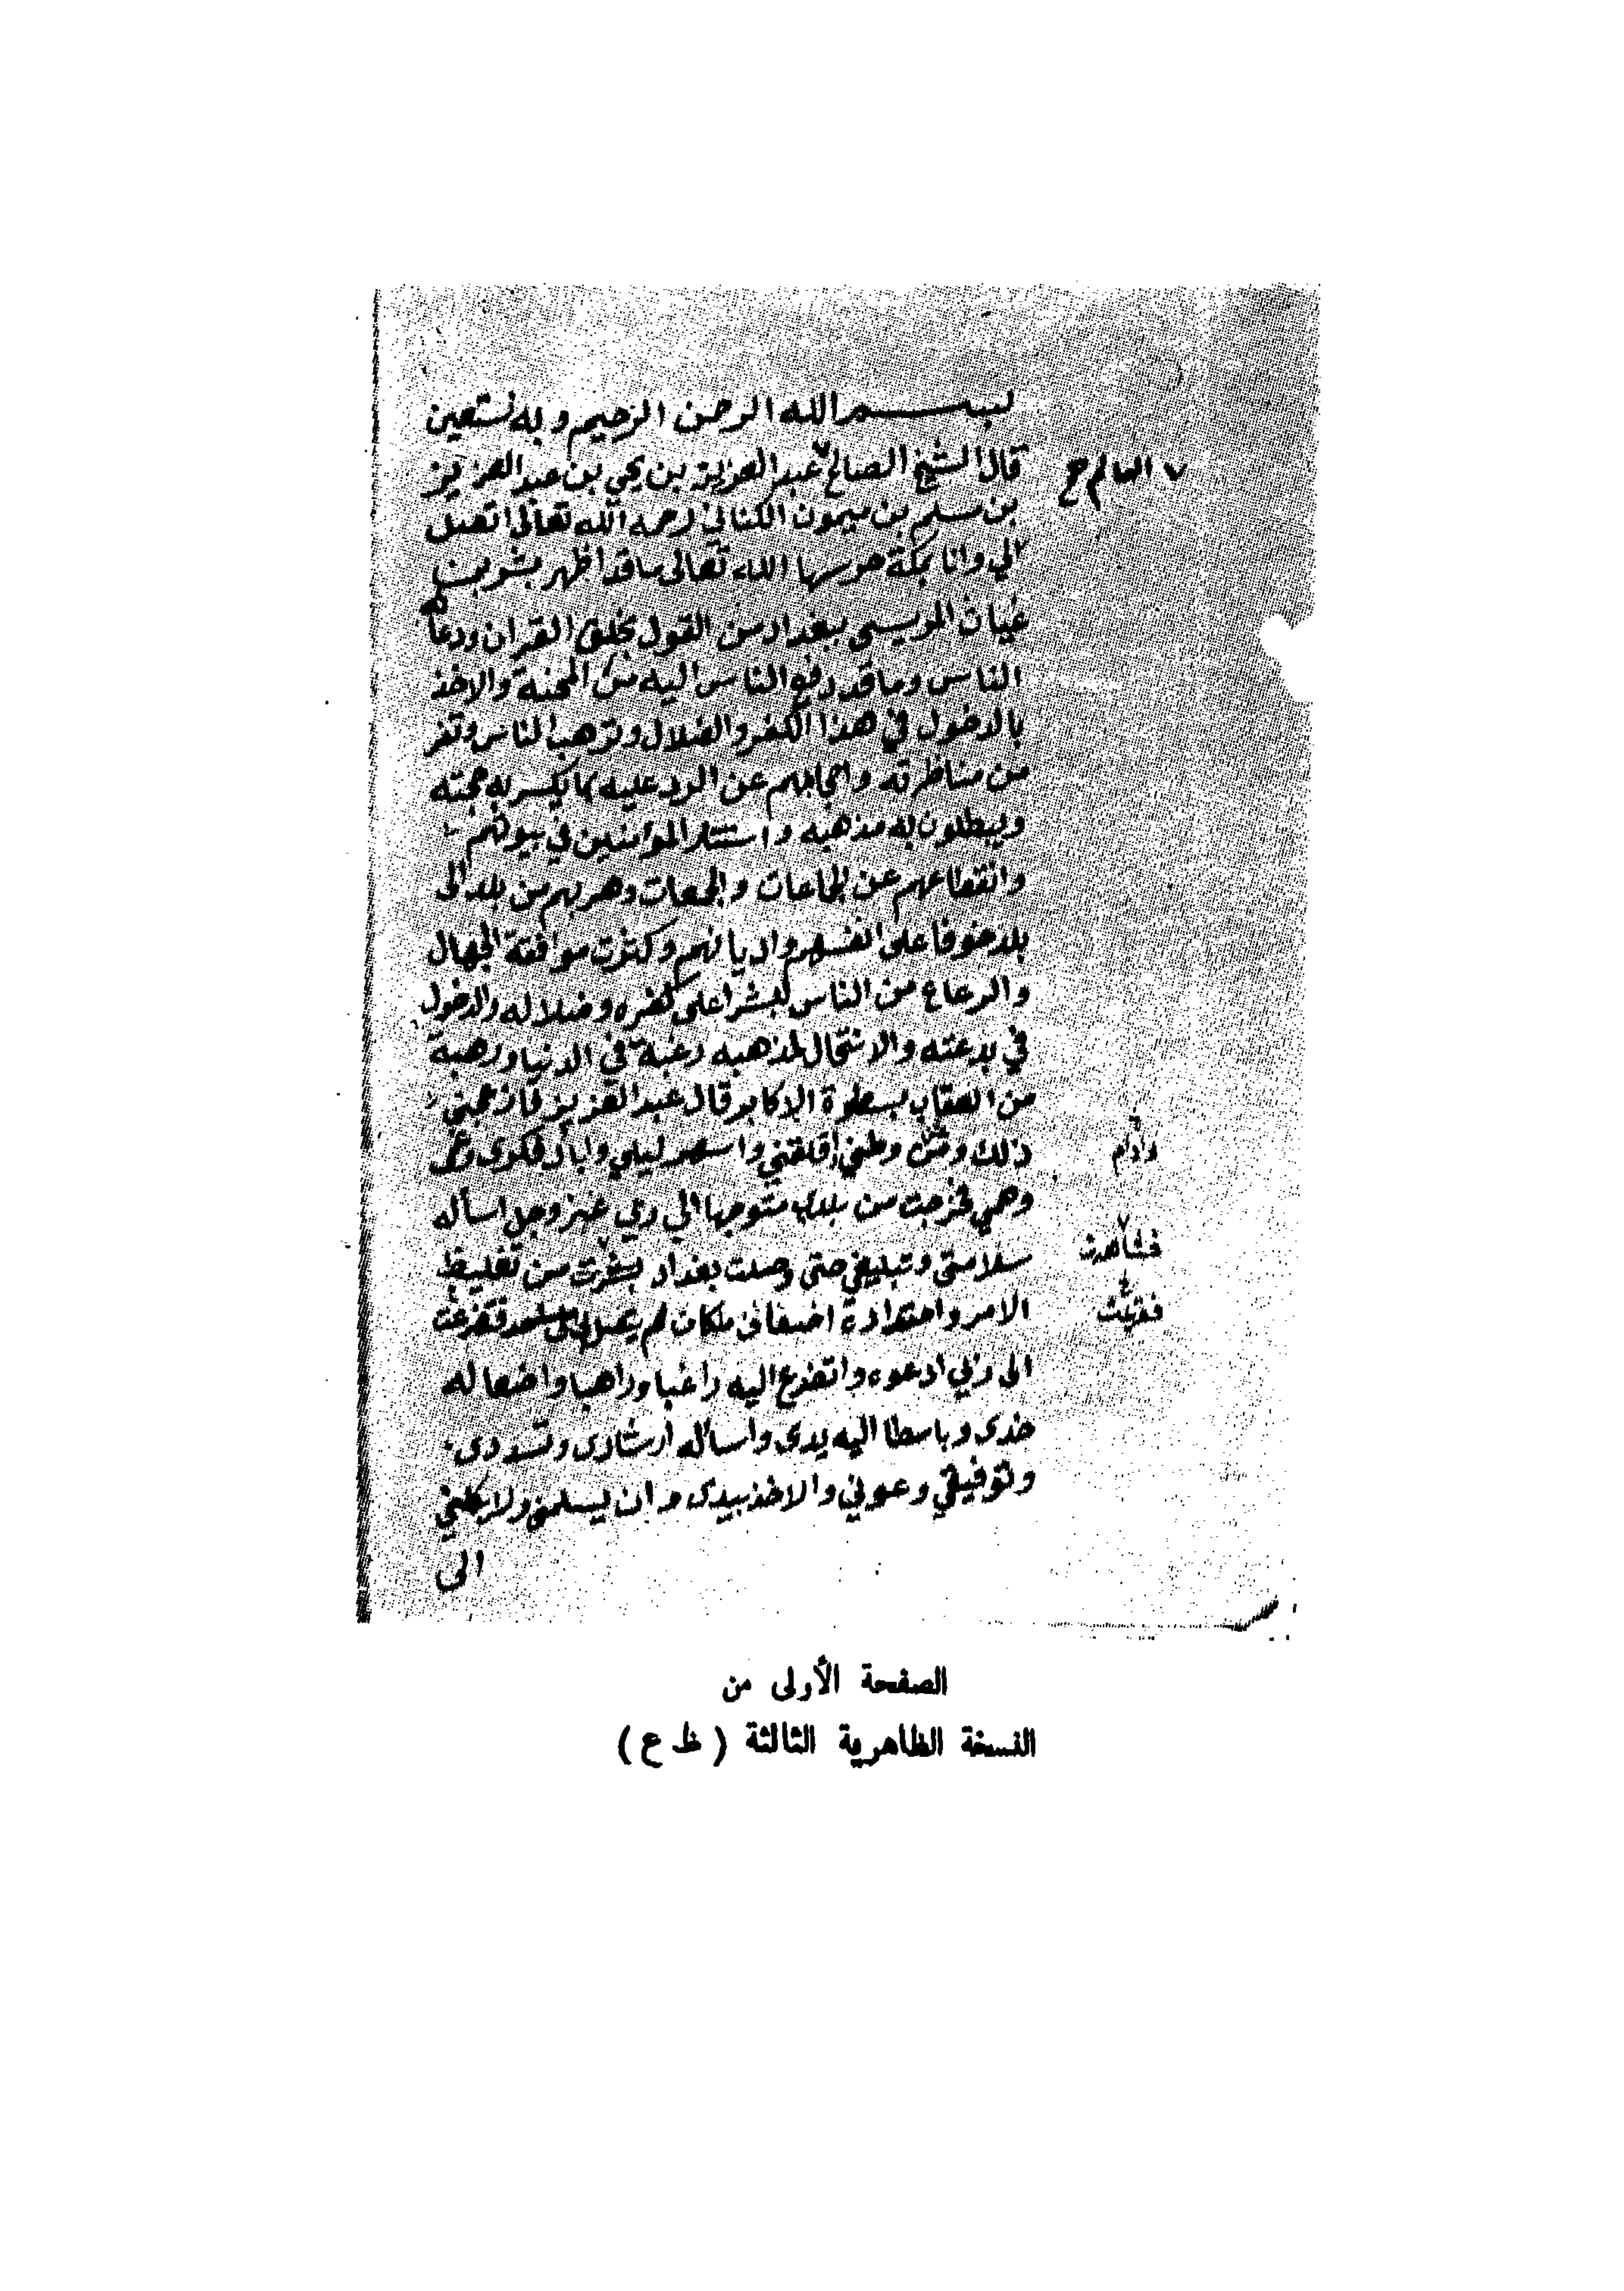 بسم الله الرحمن الرحيم وبه نستعين
قال الشيخ الصالح عبد العزيز بن يحيى بن عبد العزيز
العالم صح
بن مسلم بن ميمون الكناني رحمه الله تعالى اتصل
الي وانا بمكة حرسها الله تعالى ما قد اظهر بشر بن
غياث المريسي ببغداد من القول بخلق القران ودعاه
الناس وما قد دفع الناس اليه من المحنة والاخذ
بالدخول في هذا الكفر والضلال وترهب الناس وتفز
من مناظرته واحجابهم عن الرد عليه بما يكسر به حجته
ويبطلون به مذهبه واستتار المؤمنين في بيوتهم
وانقطاعهم عن الجماعات والجمعات وهربهم من بلد الى
بلد خوفا على انفسهم واديانهم وكثرت موافقة الجهال
والرعاع من الناس لبشر على كفره وضلاله والدخول
في بدعته والانتحال لمذهبه رغبة في الدنيا ورهبة
من العقاب بسطوة الاكابر قال عبد العزيز فازعجني
ذلك وطني اقلقني واسهر ليلي فكري
وادام
وهمي فخرجت من بلدي متوجها الي ربي عز وجل اسأله
سلامتي وتبليغي حتى وصلت بغداد من تغليظ
فشاهدت
الامر واحتداده اضعاف ما كان لم يصل الى
الى ربي ادعوه واتضرع اليه راغبا وراهبا واضعا له
خدي وباسطا اليه يدي واسأله ارشادي وتسديدي
وتوفيقي وعوني والاخذ بيدي وان يسلمني ولا يكلني
الى
الصفحة الأولى من
النسخة الظاهرية الثالثة ( ظ ع )